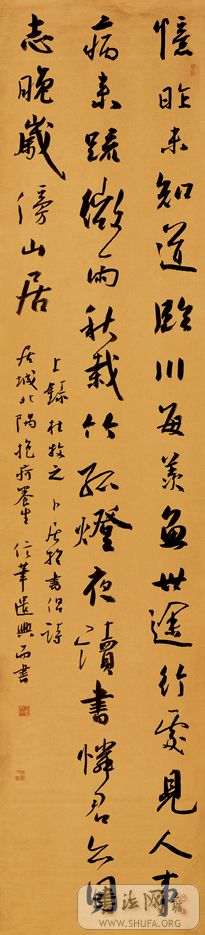 憶昨未知道臨川每羨魚世途行處見人事
病來疎微雨秋栽竹孤燈夜讀書憐君亦同
志晚歲傍山居
上錄杜牧之卜居招書侶詩
居城北隅抱疴養生信筆遣興而書
WWW.SHUFA.ORG